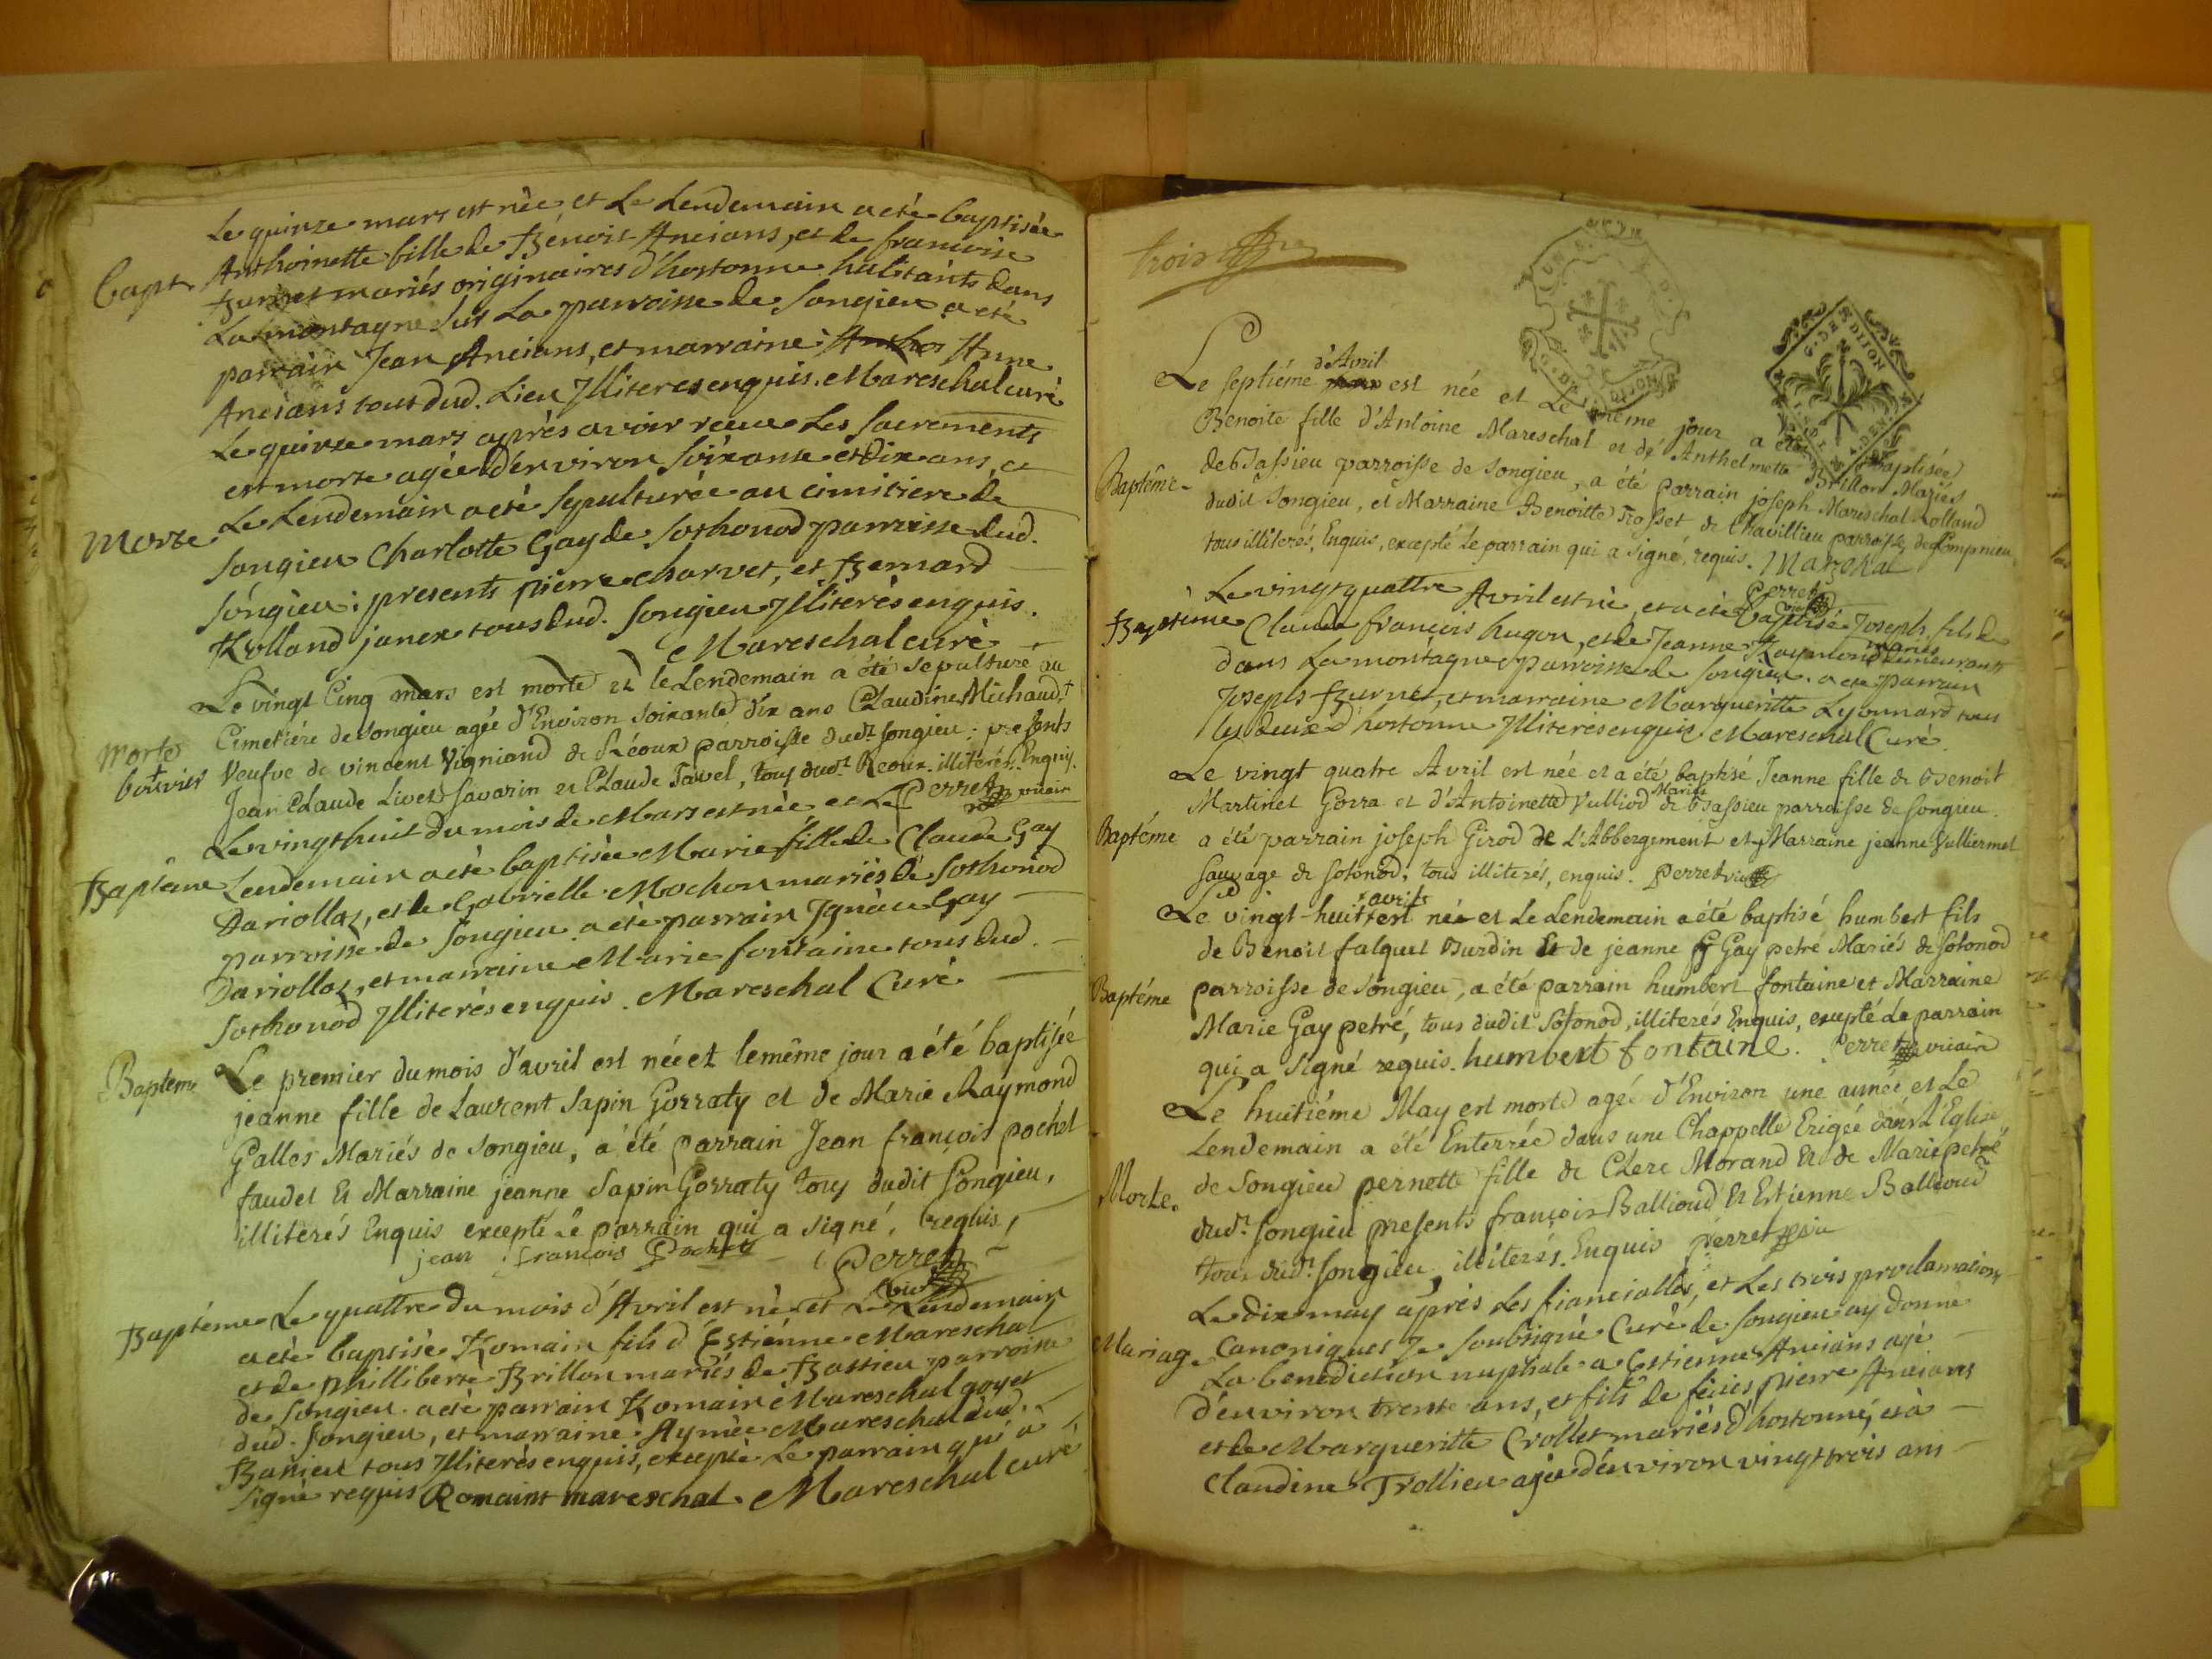 Le quinze mars est née et Le Lendemain a eté baptisée
Bapt. Anthoinette fille de Bénoit Ancians, et de francoise
Burnet mariés originaires d'hostonne habitants dans
La montagne sur La parroisse de Songieu a eté
parrain Jean Ancians, et marraine Anne
Ancians tous dud. Lieu Illiteres enquis. Mareschal curé
Le quinze mars aprés avoir receu Les sacrements
est morte agée d'environ soixante et dix ans, et
Morte Le Lendemain a eté sepulturée au cimitiere de
Songieu Charlotte Gay de Sothonod parroisse dud.
Songieu: presents pierre charvet, et Bernard
Rolland janex tous dud. Songieu Illiterés enquis.
Mareschal curé
Le vingt Cinq mars est morte et le Lendemain a été sepulturé au
morte Cimetiére de songieu agée d'Environ soixante dix ans Claudine Michaud +
+ bouvier Veufve de vincent Vigniand de Réoux parroisse dudt songieu; presents
Jean Claude Livet Savarin et Claude Tavel, tous dudt Reoux illitérés Enquis.
Perret vicair
Le vingt huit du mois de Mars est née et Le
Baptême Lendemain a eté baptisée Marie fille de Claude Gay
Dariollaz, et de Gabrielle Mochon mariés de Sothonod
parroisse de Songieu a eté parrain Ignàce Gay
Dariollaz, et marraine Marie fontaine tous dud.
Sothonod Illiterés enquis. Mareschal Curé
Bapteme Le premier du mois d'avril est née et le même jour a été baptisée
jeanne fille de Laurent Sapin Gorraty et de Marie Raymond
Galles Mariés de Songieu, a été parrain Jean françois pochet
faudet Et Marraine jeanne Sapin Gorraty tous dudit Songieu,
illiterés Enquis excepté Le parrain qui a signé, requis,
jean françois Pochet Perret vic
Baptéme Le quattre du mois d'Avril est né et Le Lendemain
a eté baptisé Romain fils d'Estiénne Mareschal
et de philliberte Brillon mariés de Bassieu parroisse
de Songieu. a eté parrain Romain Mareschal goyet
dud. Songieu, et marraine Aymée Mareschal dud.
Bassieu tous Illiterés enquis, excepté Le parrain qui a
signé requis Romaint mareschal. Mareschal curé
trois
G. DE DIJON
d'Avril
Le septiéme est née et Le même jour a été Baptisée
Benoite fille d'Antoine Mareschal et de Anthelmette Brillon Mariés
Baptême de Bassieu parroisse de Songieu, a été parrain joseph Mareschal Rolland
dudit Songieu, et Marraine Benoitte Rosset de Chavillieu parroisse de Lompnieu
tous illiterés, Enquis, excepté Le parrain qui a signé, requis. Marechal
Perret vic
Le vingt quattre Avril est né, et a eté baptisé Joseph fils de
Baptème Claude françois hugon, et de Jeanne Raymond mariés demeurants
dans La montagne parroisse de Songieu. a eté parrain
Joseph Burnet, et marraine Marguéritte Lyonnard tous
les deux d'hostonne Illiteres enquis Mareschal Curé.
Le vingt quatre Avril est née et a été baptisé Jeanne fille de Benoit
Martinet Gorra et d'Antoinette Vulliod Mariés de Bassieu parroisse de Songieu.
Baptéme a été parrain joseph Girod de L'Abbergement et Marraine jeanne Vulliermet
Sauvage de Sotonod, tous illiterés, enquis. Perret vic
Le vingt-huit avril est né et Le Lendemain a été baptisé humbert fils
de Benoit falquet Burdin et de jeanne Gay petré Mariés de Sotonod
Baptéme parroisse de Songieu, a été parrain humbert fontaine et Marraine
Marie Gay petré, tous dudit Sotonod, illiterés Enquis, exepté Le parrain
qui a Signé requis. humbert fontaine. Perret vicair
Le huitiéme May est morte agée d'Environ une année et Le
Lendemain a été Enterrée dans une Chappelle Erigée dans L'Eglise
Morte. de Songieu pernette fille de Clere Morand Et de Marie petré
dudt. Songieu presents françois Ballioud Et Estienne Ballioud
tous dudt. Songieu, illiterés. Enquis perret vic
Le dix may aprés Les fianciallés, et Les trois proclamations
Mariage Canoniques Je Soubsigné Curé de Songieu ay donné
La benediction nuptiale a Estienne Ancians agé
d'environ trente ans, et fils de feûes pierre Ancians
et de Margueritte Crollet mariés d'hostonne, et à
Claudine Trollieu agée d'environ vingt trois ans